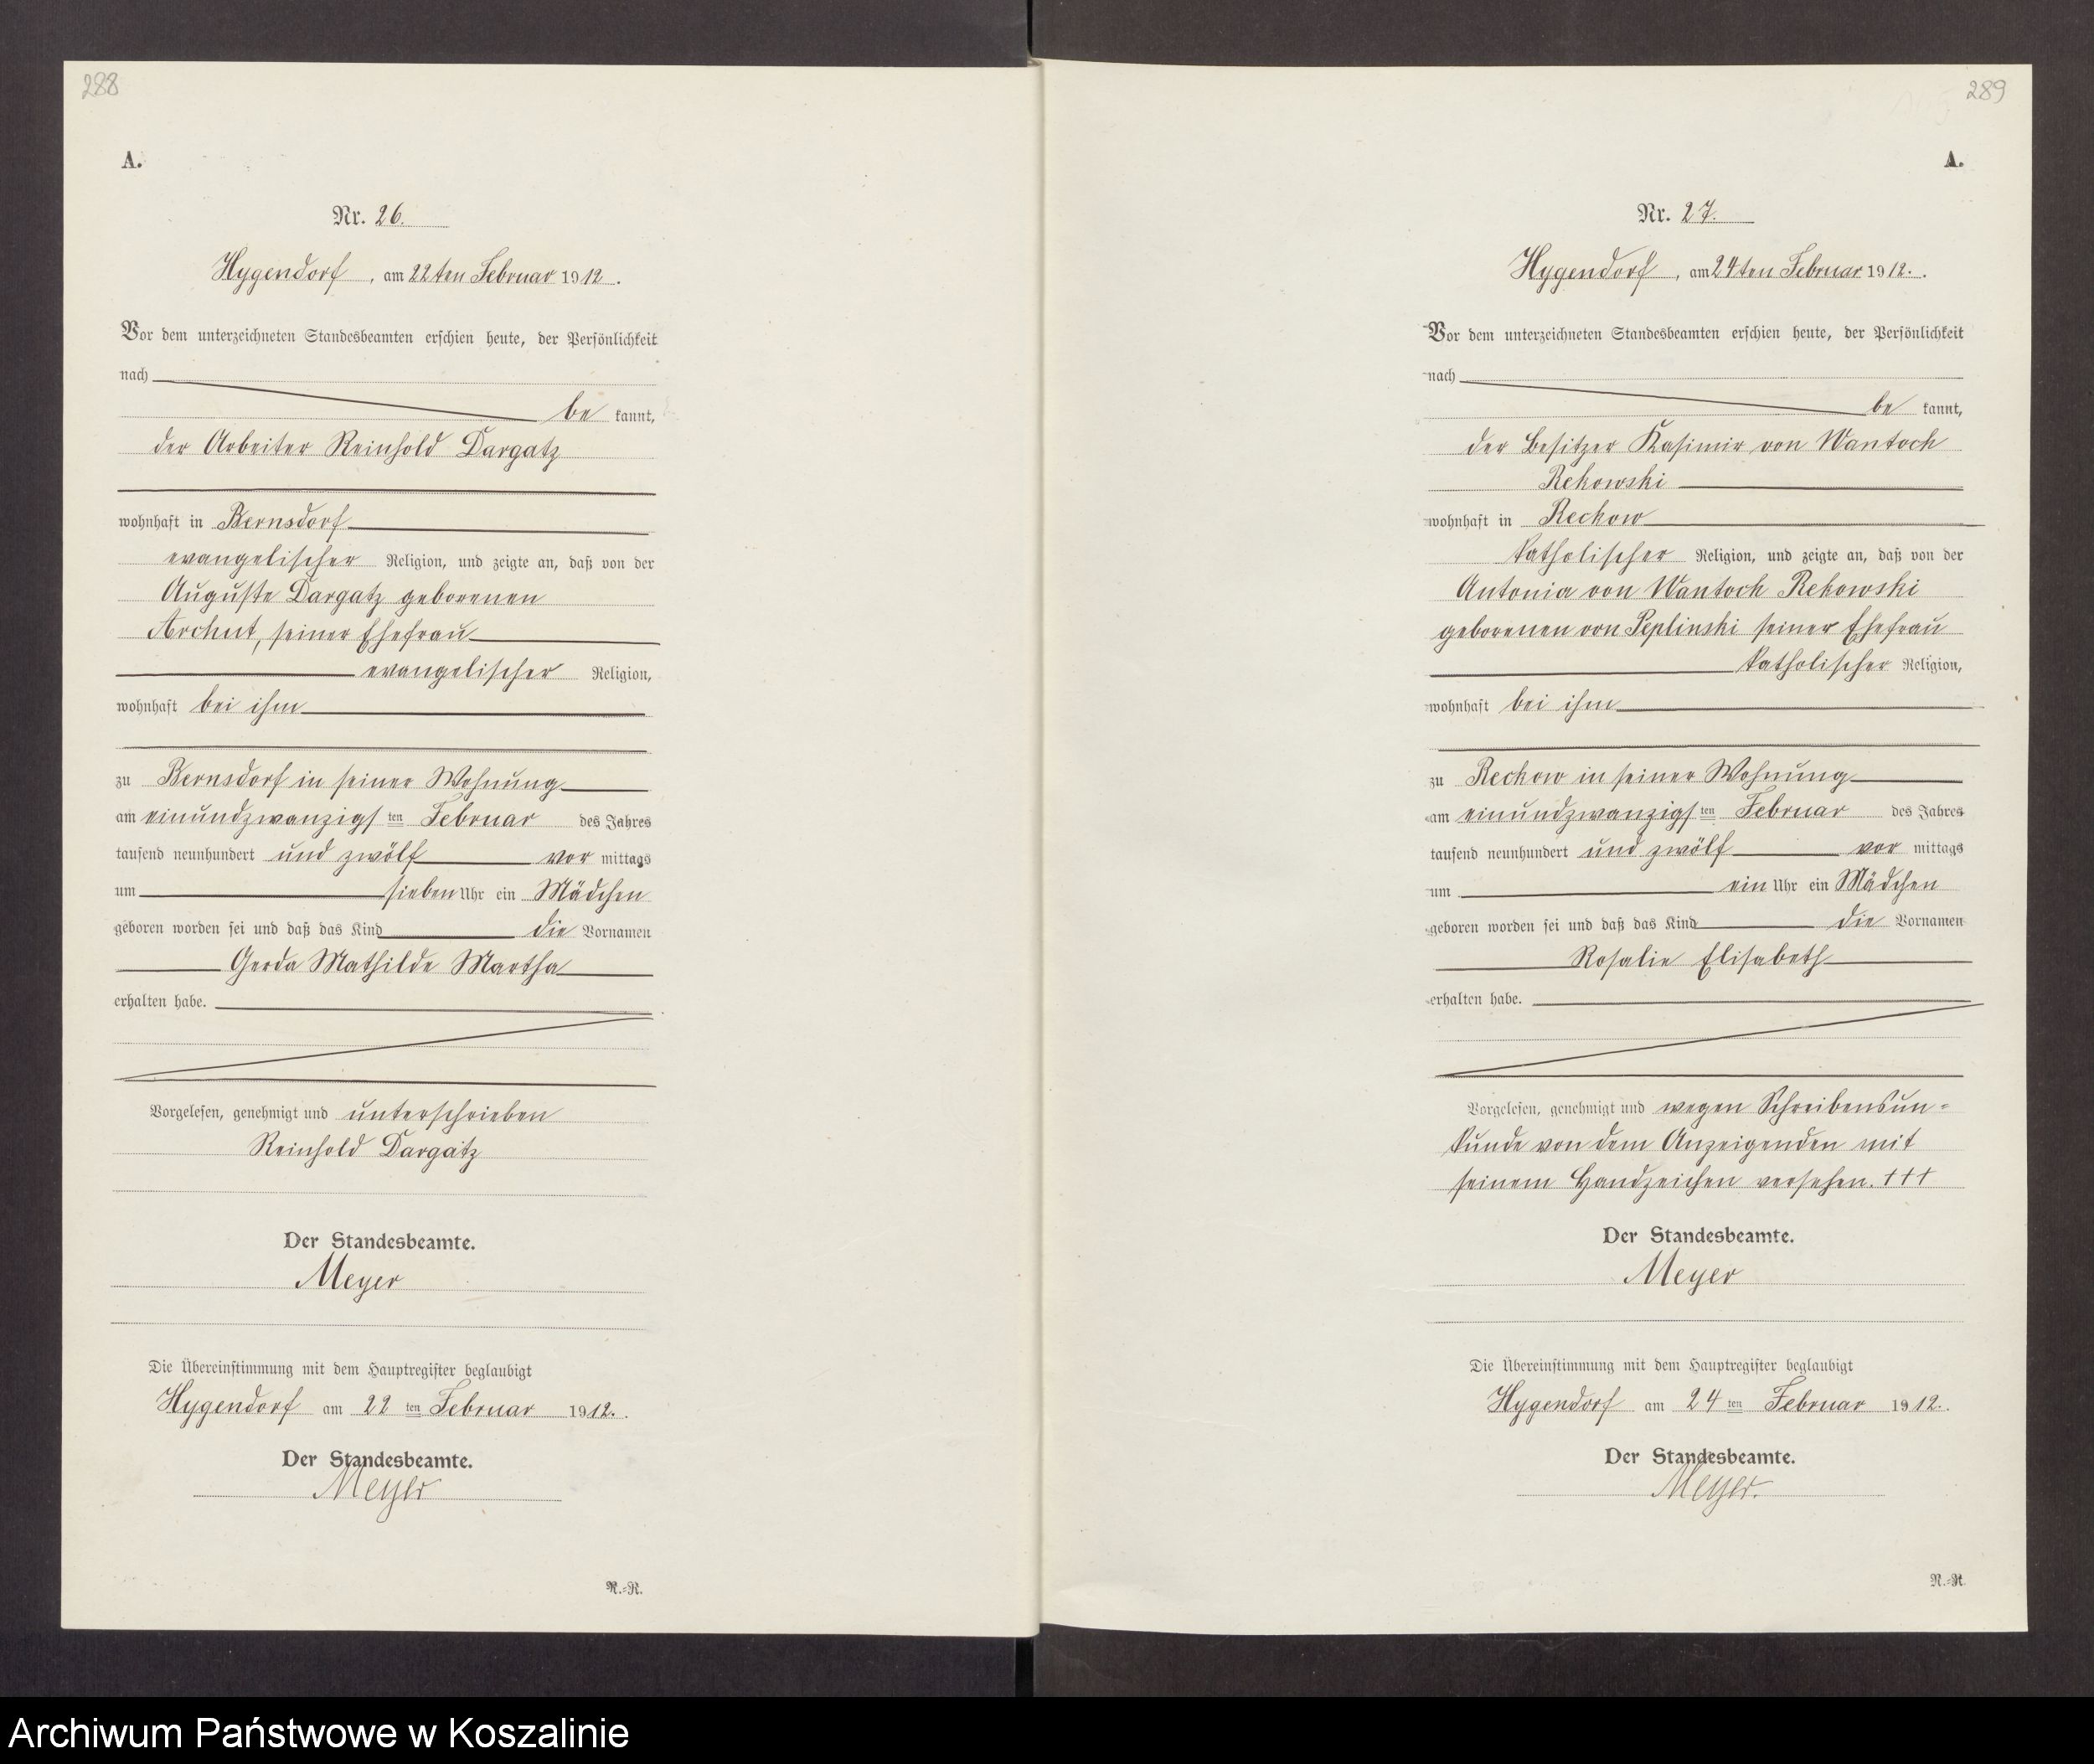 288
A.
Nr. 26.
Hygendorf, am 22ten Februar 1912.
Vor dem unterzeichneten Standesbeamten erschien heute, der Persönlichkeit
nach
be kannt,
der Arbeiter Reinhold Dargatz
wohnhaft in Bernsdorf
evangelischer Religion, und zeigte an, daß von der
Auguste Dargatz geborenen
Archut, seiner Ehefrau
evangelischer Religion,
wohnhaft bei ihm
zu Bernsdorf in seiner Wohnung
am einundzwanzigsten Februar des Jahres
tausend neunhundert und zwölf vor mittags
um sieben Uhr ein Mädchen
geboren worden sei und daß das Kind die Vornamen
Gerda Mathilde Martha
erhalten habe.
Vorgelesen, genehmigt und unterschrieben
Reinhold Dargatz
Der Standesbeamte.
Meyer
Die Übereinstimmung mit dem Hauptregister beglaubigt
Hygendorf am 22 ten Februar 1912.
Der Standesbeamte.
Meyer
R.=R.
289
A.
Nr. 27.
Hygendorf, am 24ten Februar 1912.
Vor dem unterzeichneten Standesbeamten erschien heute, der Persönlichkeit
nach
be kannt,
der Besitzer Kasimir von Wantoch
Rekowski
wohnhaft in Reckow
katholischer Religion, und zeigte an, daß von der
Antonia von Wantoch Rekowski
geborenen von Peplinski seiner Ehefrau
katholischer Religion,
wohnhaft bei ihm
zu Reckow in seiner Wohnung
am einundzwanzigsten Februar des Jahres
tausend neunhundert und zwölf vor mittags
um ein Uhr ein Mädchen
geboren worden sei und daß das Kind die Vornamen
Rosalie Elisabeth
erhalten habe.
Vorgelesen, genehmigt und wegen Schreibensun-
kunde von dem Anzeigenden mit
seinem Handzeichen versehen. +++
Der Standesbeamte.
Meyer
Die Übereinstimmung mit dem Hauptregister beglaubigt
Hygendorf am 24 ten Februar 1912.
Der Standesbeamte.
Meyer.
R.=R.
Archiwum Państwowe w Koszalinie